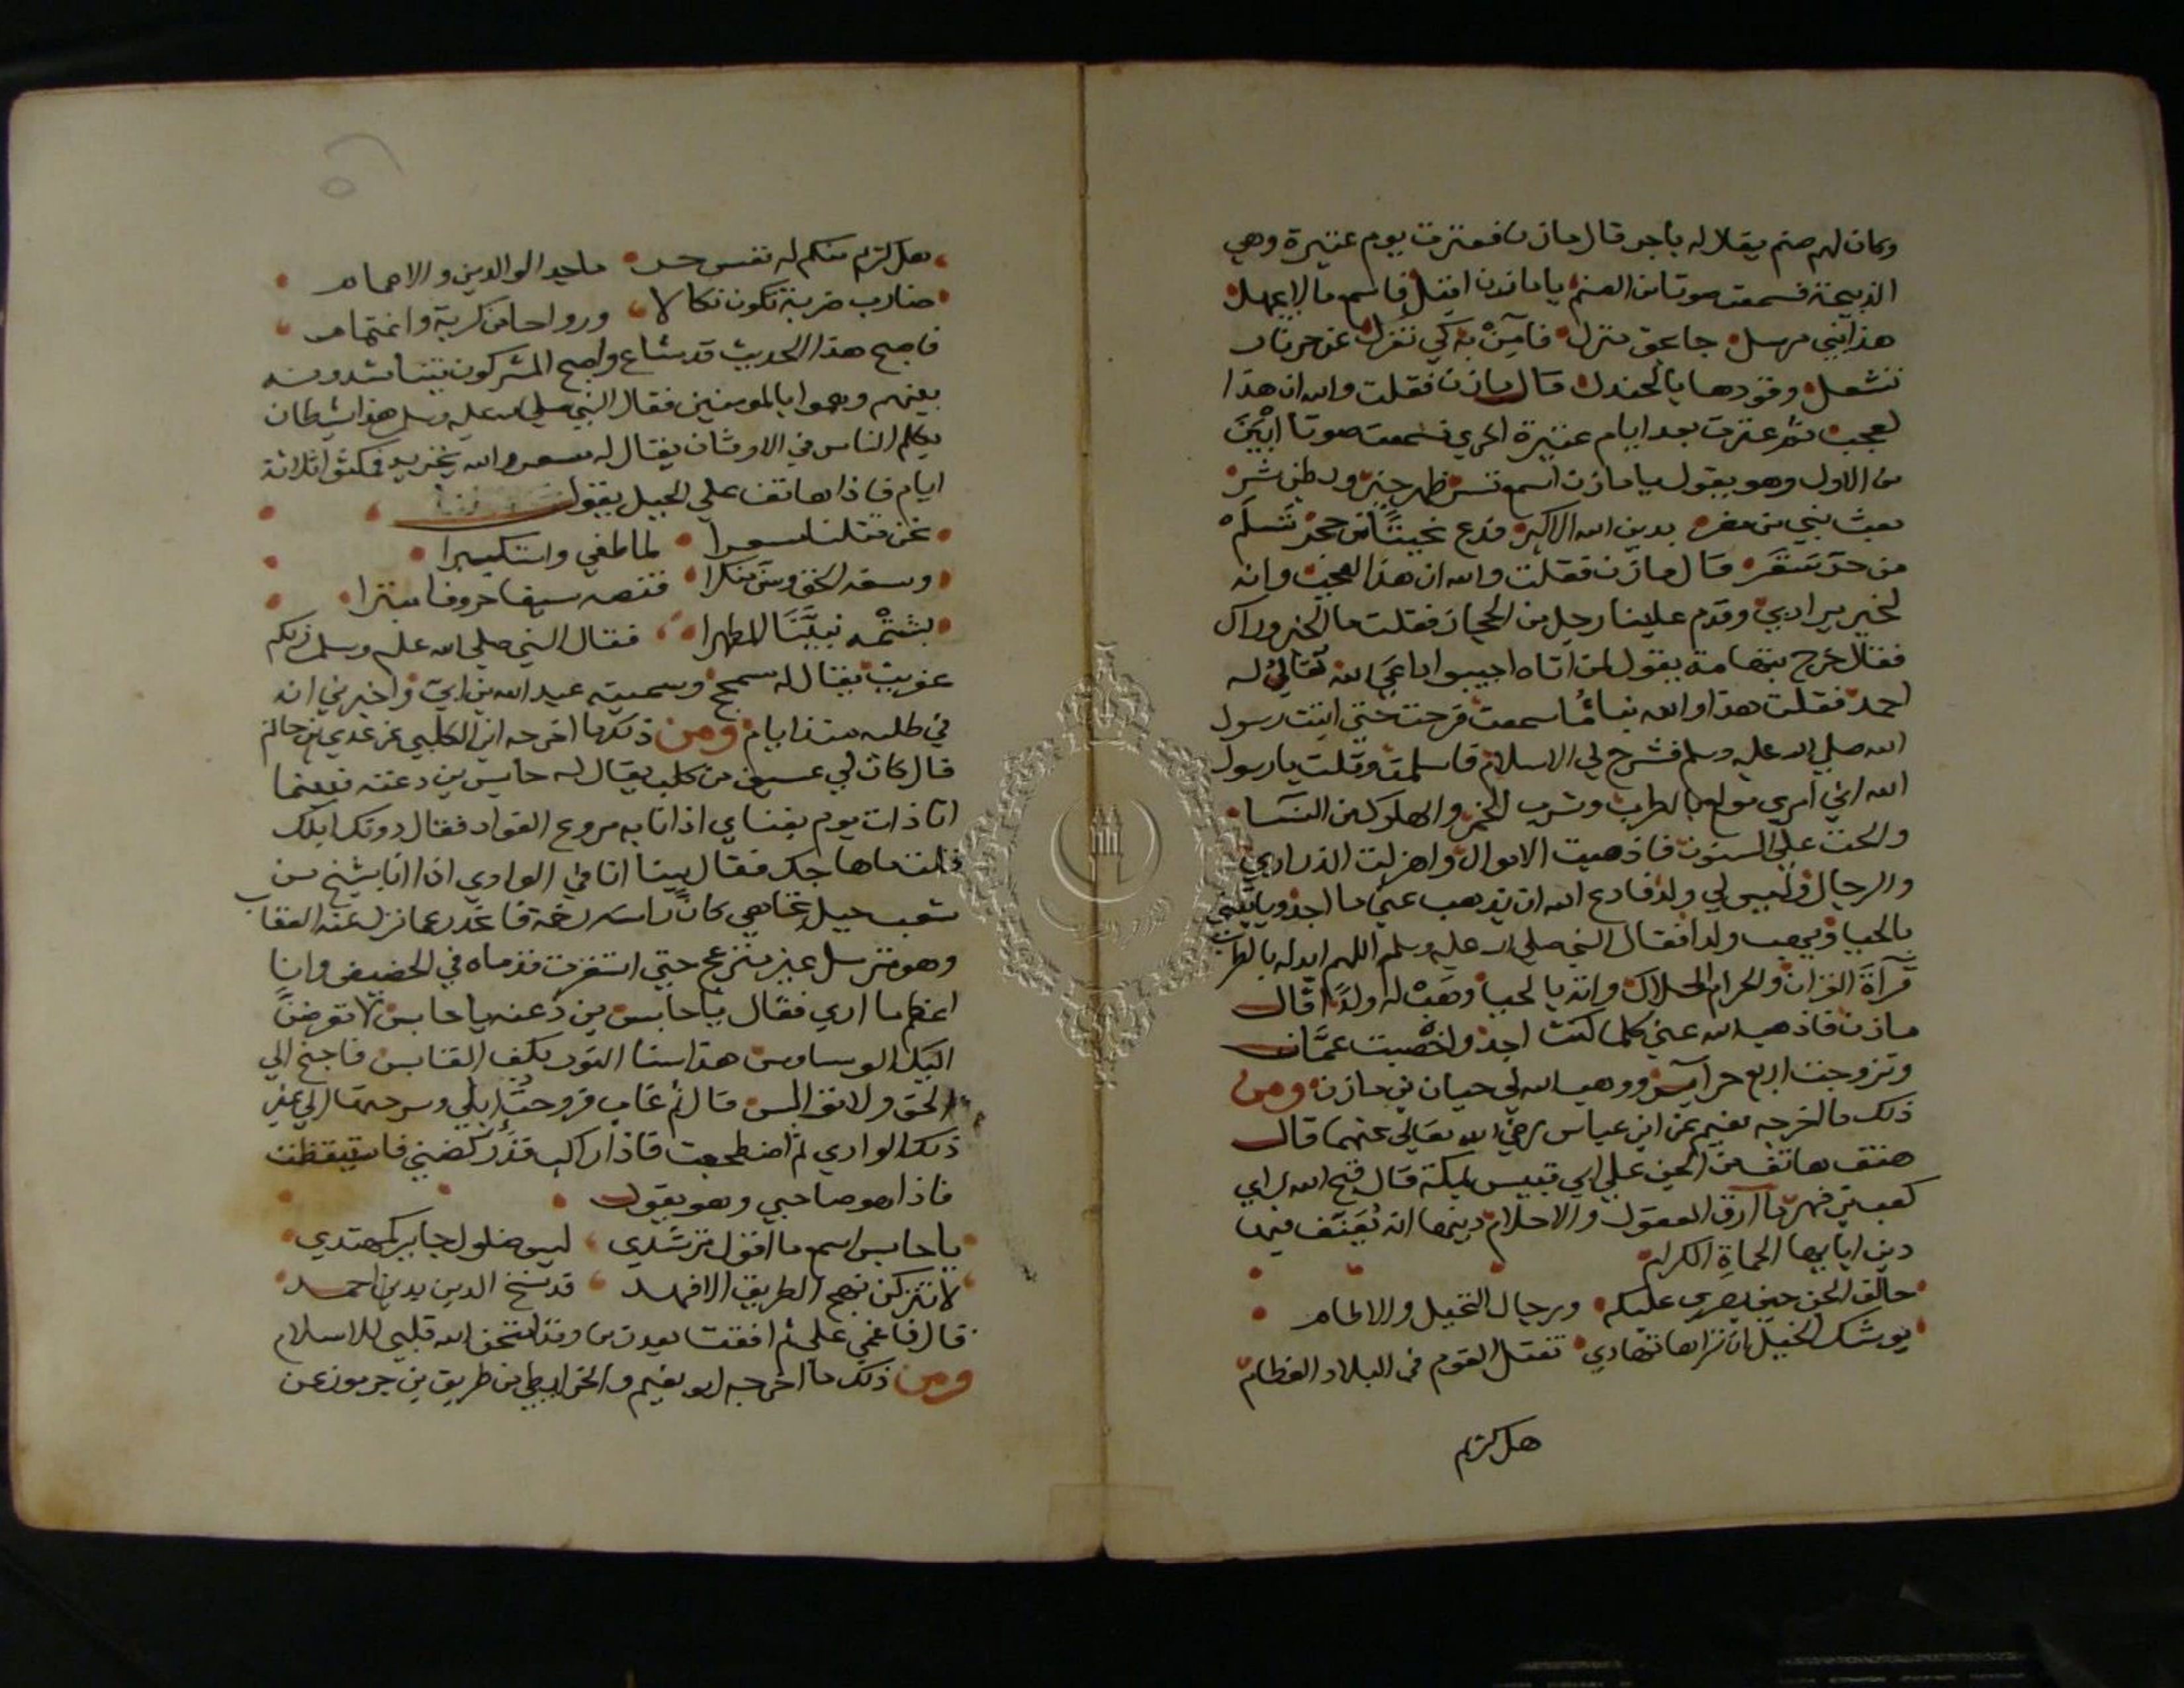 وكان لهم صنم يقال له باجر قال مازن فعترت يوم عتيرة وهي
الذبيحة فسمعت صوتا من الصنم يا مازن اقبل فاسمع ما لا يجهل
هذا نبي مرسل جا بحق منزل فآمن به كي تعزل عن حر نار
تشعل وقودها بالجندل قال مازن فقلت والله ان هذا
لعجب ثم عترت بعد ايام عتيرة اخري فسمعت صوتا ابين
من الاول وهو يقول يا مازن اسمع تسر ظهر خير وبطن شر
بعث نبي من مضر بدين الله الاكبر فدع نحيتا من حجر تسلم
من حر سقر قال مازن فقلت والله ان هذا العجب وانه
لخير يراد بي وقدم علينا رجل من الحجاز فقلت ما الخبر وراك
فقال خرج بتهامة يقول لمن اتاه اجيبوا داعي الله يقال له
احمد فقلت هذا والله نبا ما سمعت فرحت حتي اتيت رسول
الله صلي الله عليه وسلم فشرح لي الاسلام فاسلمت وقلت يا رسول
الله اني امري مولع بالطرب وشرب الخمر والهلوك من النسا
والحت علي السنون فاذهبت الاموال واهزلت الذراري
والرجال وليس لي ولد فادع الله ان يذهب عني ما اجد وياتيني
بالحيا ويهب ولدا فقال النبي صلي الله عليه وسلم اللهم ابدله بالطرب
قرآة القران والحرام الحلال وائته بالحيا وهب له ولدا قال
مازن فاذهب الله عني كلما كنت اجد واخصبت عمان
وتزوجت اربع حراير ووهب الله لي حيان بن مازن ومن
ذلك ما اخرجه نعيم عن ابن عباس رضي الله تعالي عنهما قال
هتف هاتف من الجن علي ابي قبيس بمكة قال قبح الله راي
كعب بن فهر ما ارق العقول والاحلام دينها انه يعنف فيها
دين ابايها الحماة الكرام
حالف الجن حين يصري عليكم ورجال النخيل والاطام
يوشك الخيل ان تراها تهادي تقتل القوم في البلاد العظام
هل كريم
هل كريم منكم له نفس حر ماجد الوالدين والاعمام
ضارب ضربة تكون نكالا ورواحا من كربة واغتمام
فاصبح هذا الحديث قد شاع واصبح المشركون يتناشدونه
بينهم وهموا بالمومنين فقال النبي صلي الله عليه وسلم هذا شيطان
يكلم الناس في الاوثان يقال له مسعر والله يخزيه فمكثوا ثلاثة
ايام فاذا هاتف علي الجبل يقول
نحن قتلنا مسعرا لما طغي واستكبرا
وسفه الحق وسن منكرا قنعه سيفا حروفا مبترا
بشتمه نبينا المطهرا فقال النبي صلي الله عليه وسلم ذلكم
عفريت يقال له سمحج وسميته عبد الله بن ابي واخبرني انه
في طلبه منذ ايام ومن ذلك ما اخرجه ابن الكلبي عن عدي بن حاتم
قال كان لي عسيف من كلب يقال له حابس بن دغنه فبينما
انا ذات يوم بفناي اذ انا به مروع الفواد فقال دونك ابلك
فقلت ما هاجك فقال بينا انا في الوادي اذ انا بشيخ من
شعب جبل تجاهي كان راسه رخمة فانحدر عما تزل عنه العقاب
وهو مترسل غير منزعج حتي استقرت قدماه في الحضيض وانا
اعظم ما اري فقال يا حابس بن دغنه يا حابس لا تعرضن
اليك الوساوس هذا سنا النور بكف القابس فاجنح الي
الحق ولا توالس قال ثم غاب فروحت ابلي وسرحتها الي غير
ذلك الوادي ثم اضطجعت فاذا راكب قد ركضني فاستيقظت
فاذا هو صاحبي وهو يقول
يا حابس اسمع ما اقول ترشدي ليس ضلول جاير كمهتدي
لا تتركن نهج الطريق الاقصد قد نسخ الدين بدين احمد
قال فاغمي علي ثم افقت بعد زمن وقد امتحن الله قلبي للاسلام
ومن ذلك ما اخرجه ابو نعيم والخرايطي من طريق بن خربوذ عن